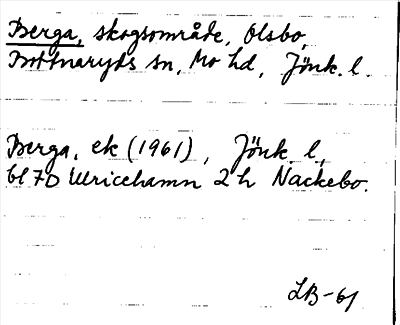 Berga, skogsområde, Olsbo,
Bottnaryds sn, Mo hd, Jönk. l.
Berga, ek (1961), Jönk. l,
bl 7D Ulricehamn 2 h Nackebo.
LB-61